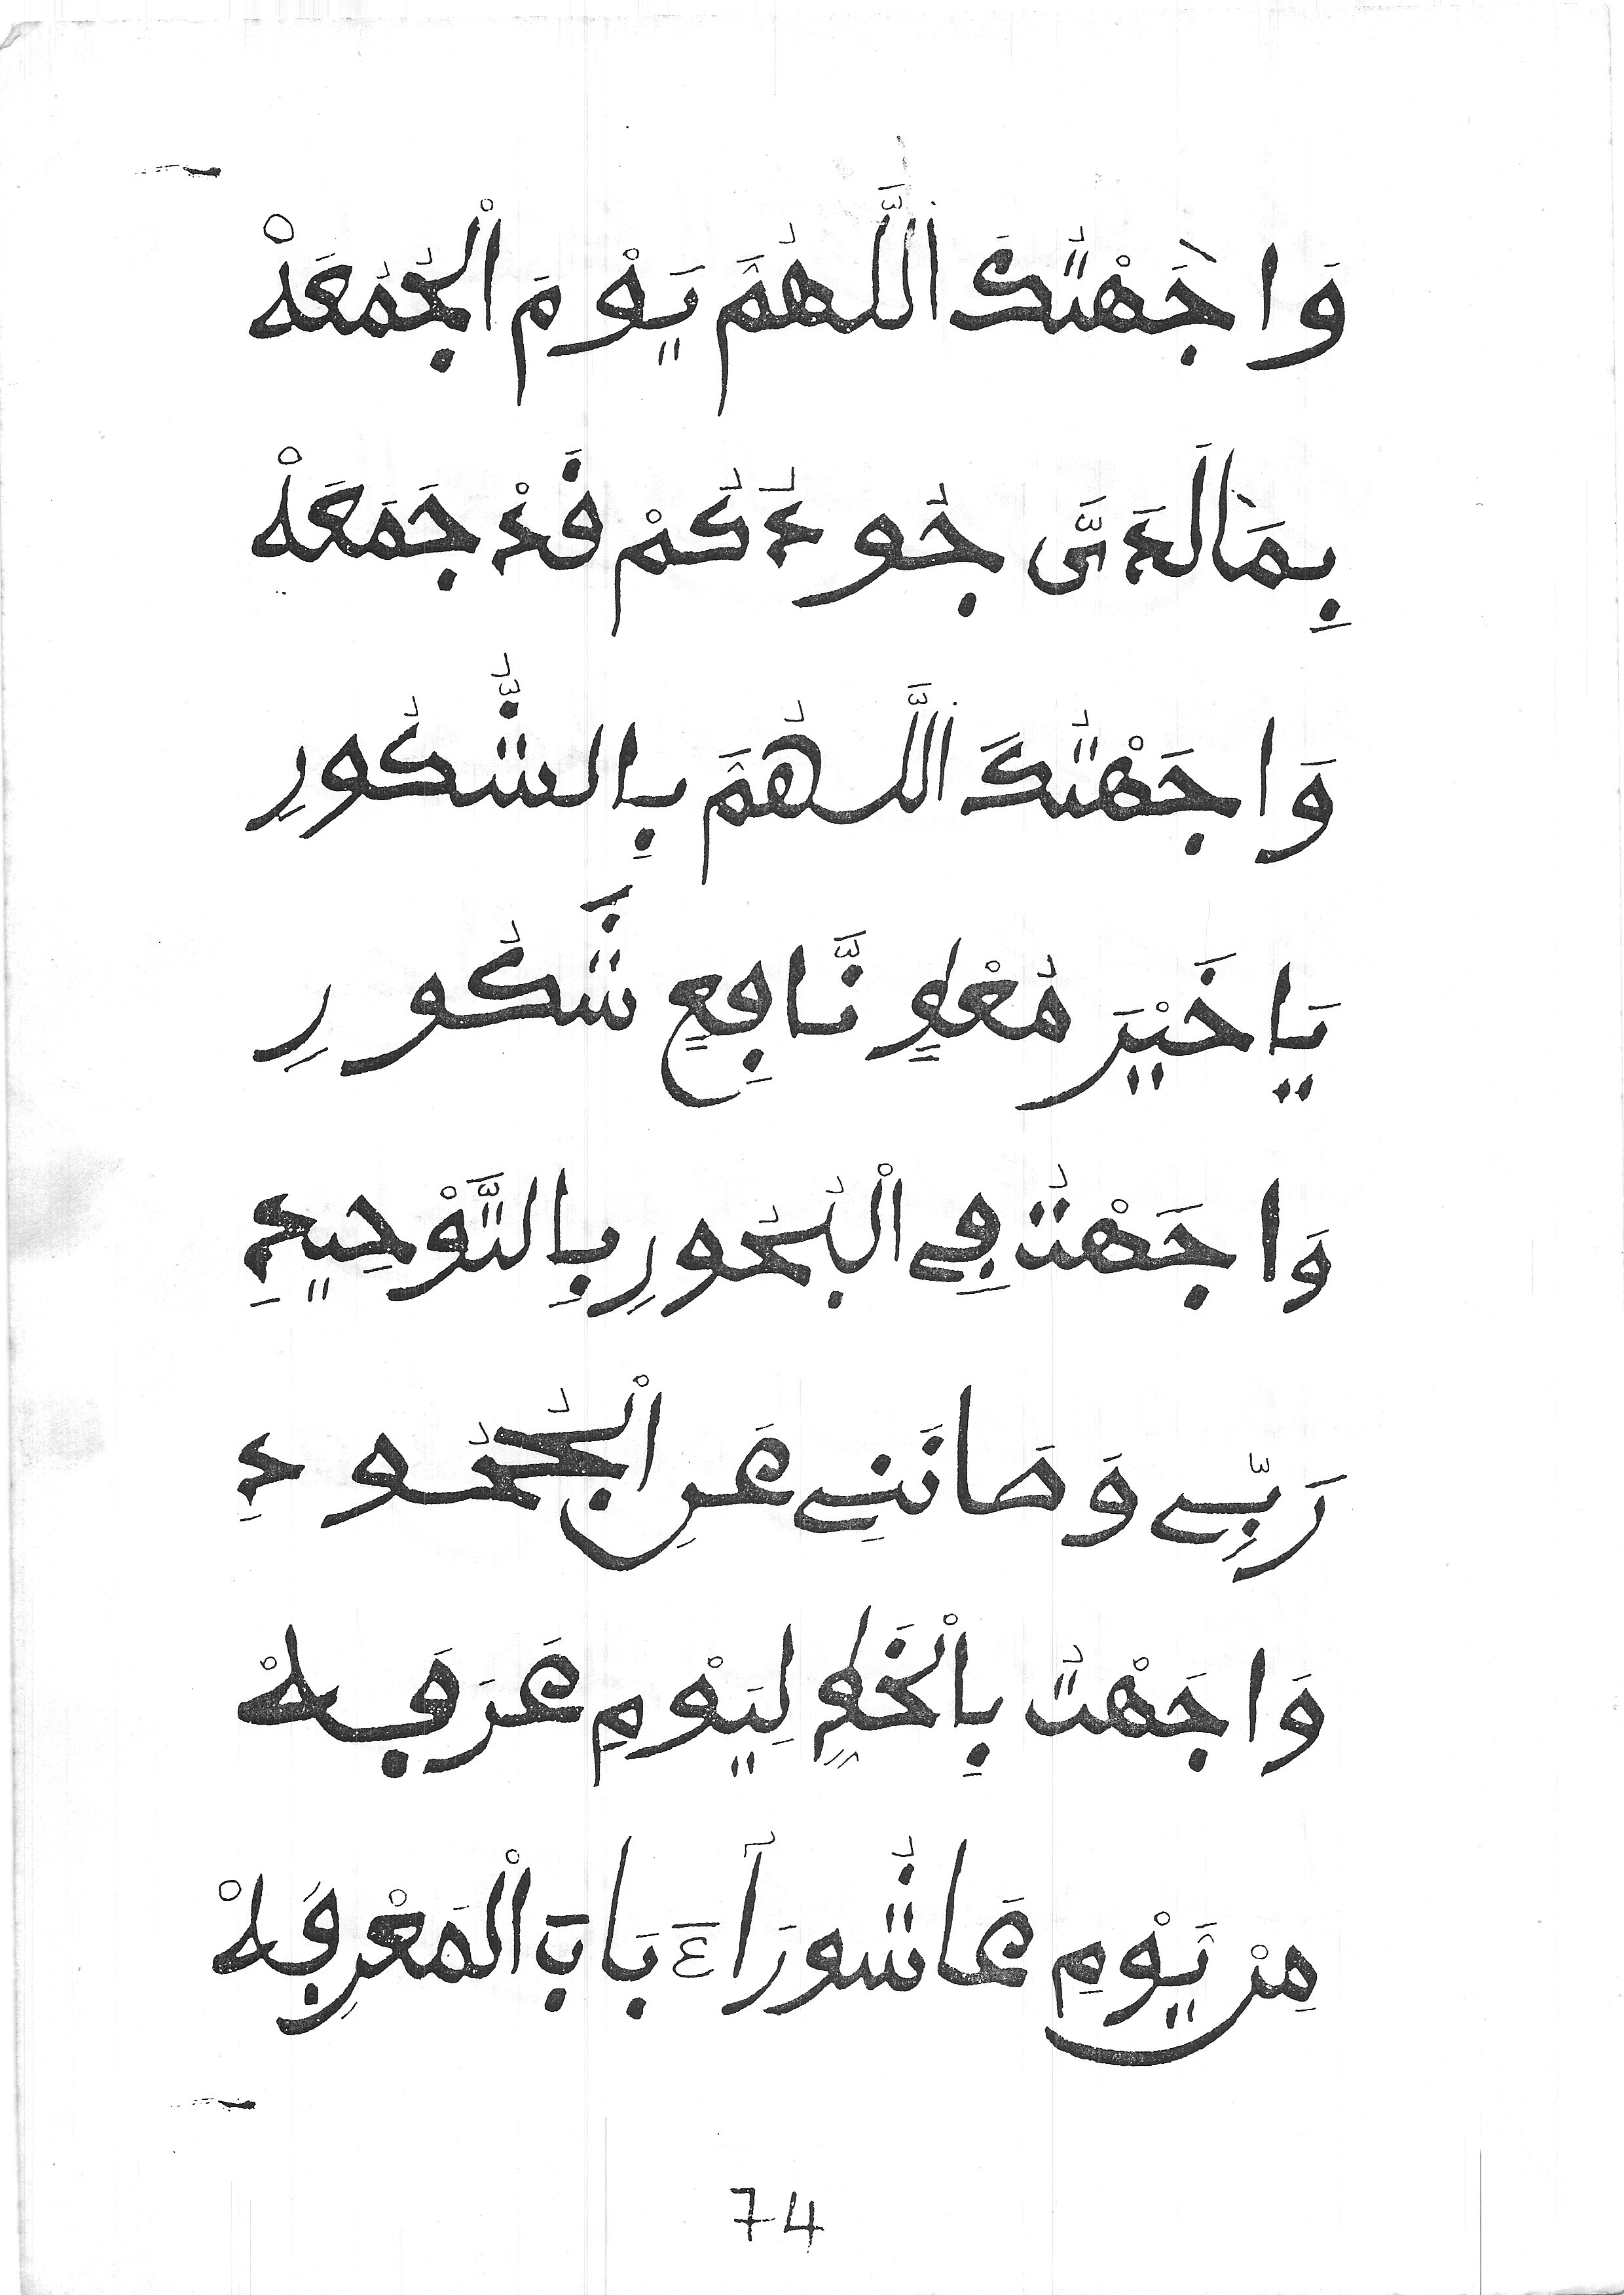 وَاجَهْتُكَ اللَّهُمَّ يَوْمَ الْجُمُعَهْ
بِمَا لَدَىَّ جُودُكُمْ قَدْ جَمَعَهْ
وَاجَهْتُكَ اللَّهُمَّ بِالشُّكُورِ
يَا خَيْرَ مُعْطٍ نَّافِعٍ شَكُورِ
وَاجَهْتُ فِي الْبُحُورِ بِالتَّوْحِيدِ
رَبِّي وَصَانَنِي عَنِ الْجُحُودِ
وَاجَهْتُ بِالْخَطِّ لِيَوْمِ عَرَفَهْ
مِنْ يَوْمِ عَاشُورَآءَ بَابَ الْمَعْرِفَهْ
74